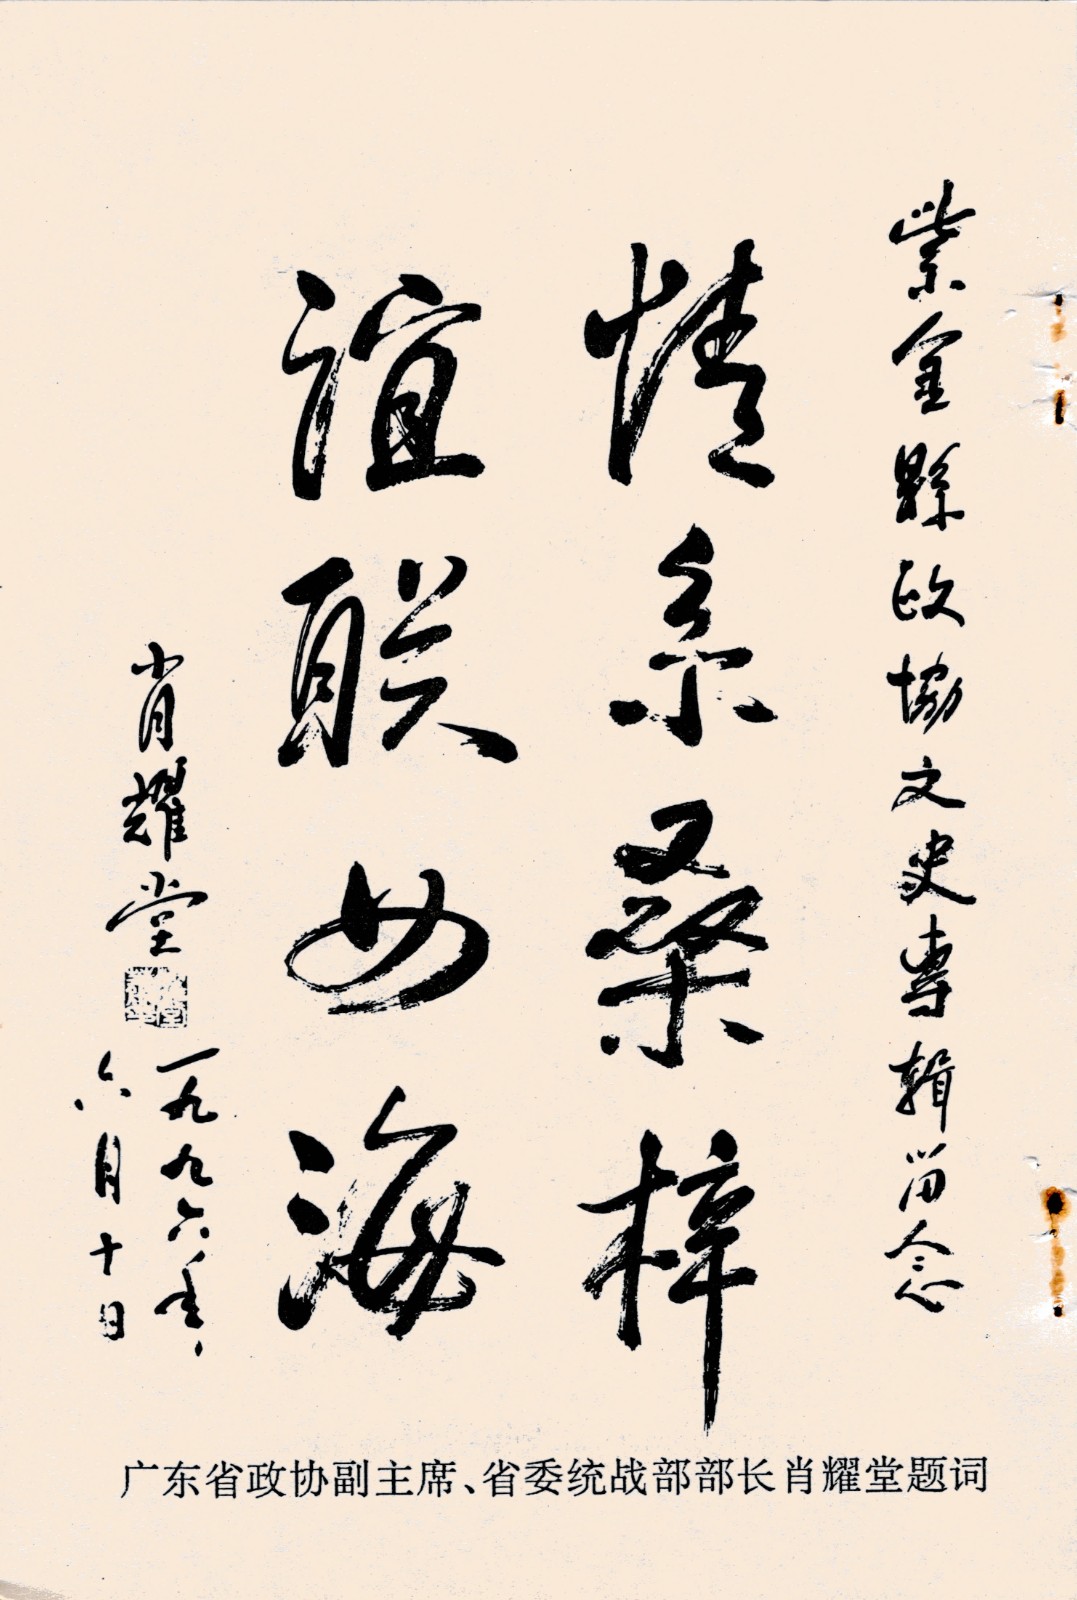 紫金縣政協文史專輯留念
情系桑梓
谊联四海
肖耀堂
一九九六年
六月十日
广东省政协副主席、省委统战部部长肖耀堂题词